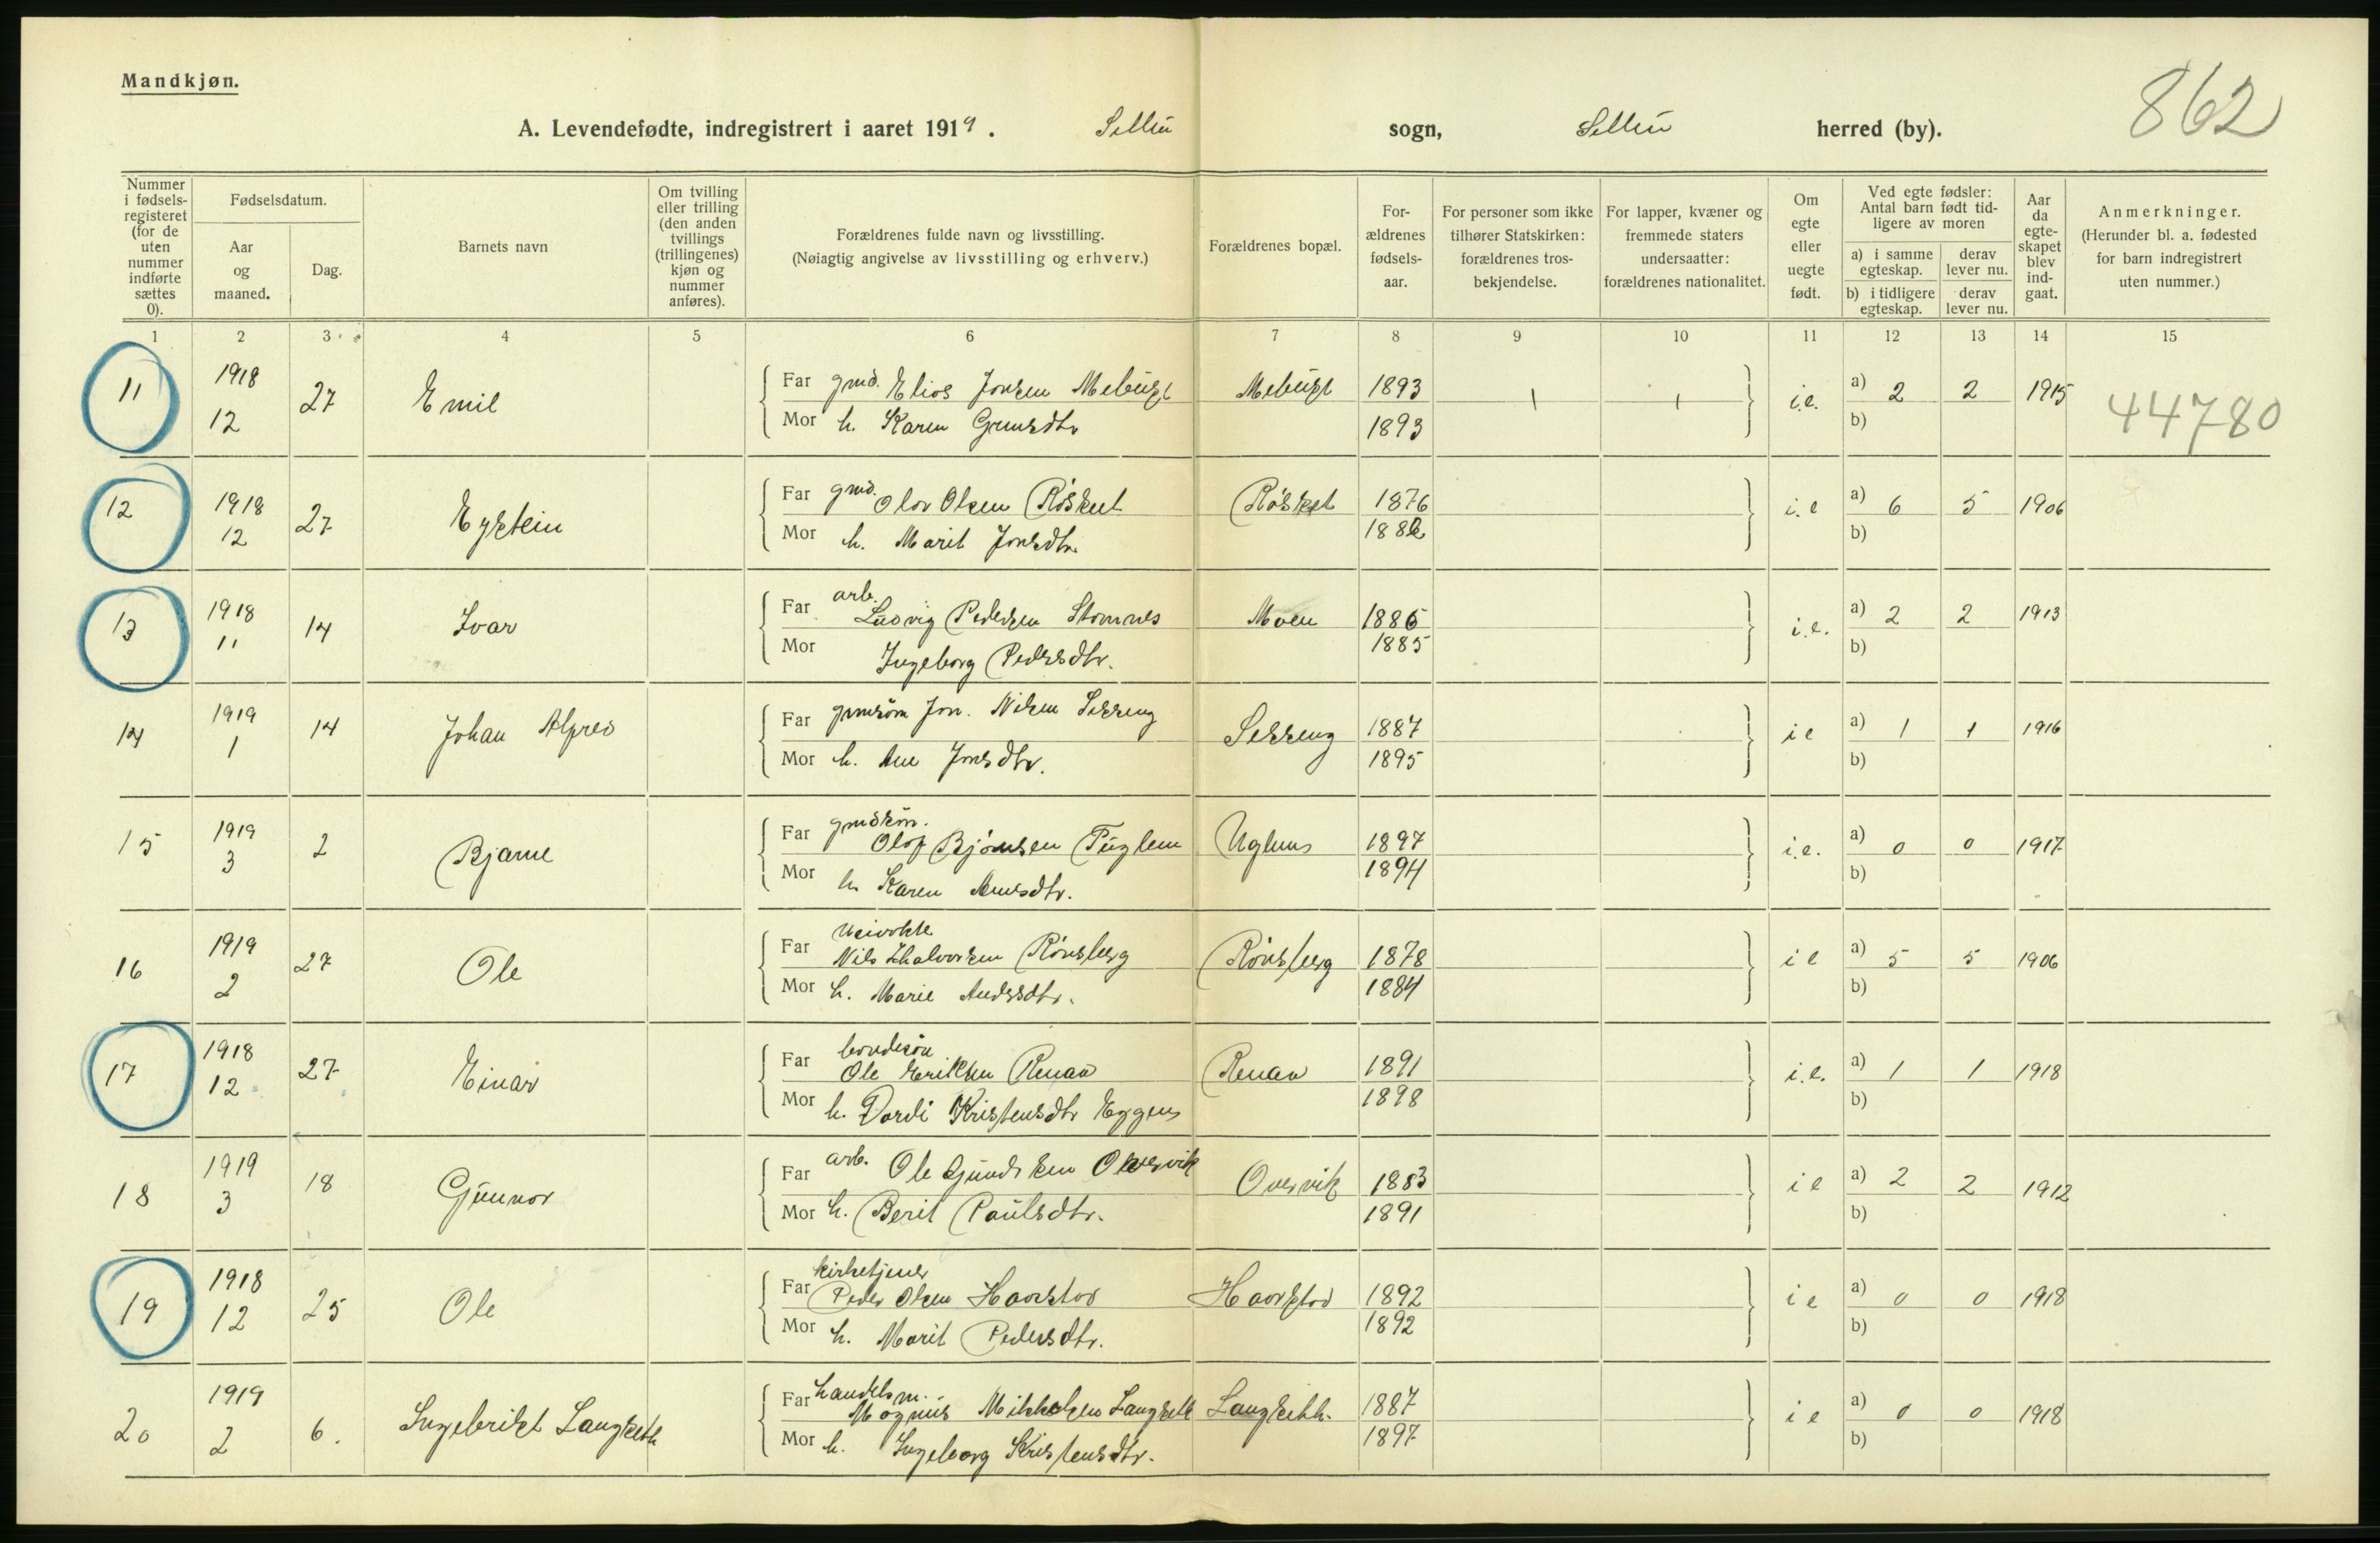 Mandkjøn.
862
A. Levendefødte, indregistrert i aaret 1919. Selbu sogn, Selbu herred (by).
Nummer i fødsels-registeret (for de uten nummer indførte sættes 0).
Fødselsdatum.
Aar og maaned.
Dag.
Barnets navn
Om tvilling eller trilling (den anden tvillings (trillingenes) kjøn og nummer anføres).
Forældrenes fulde navn og livsstilling.
(Nøiagtig angivelse av livsstilling og erhverv.)
Forældrenes bopæl.
For-ældrenes fødsels-aar.
For personer som ikke tilhører Statskirken: forældrenes tros-bekjendelse.
For lapper, kvæner og fremmede staters undersaatter: forældrenes nationalitet.
Om egte eller uegte født.
Ved egte fødsler: Antal barn født tid-ligere av moren
a) i samme egteskap.
derav lever nu.
b) i tidligere egteskap.
derav lever nu.
Aar da egte-skapet blev ind-gaat.
Anmerkninger.
(Herunder bl. a. fødested for barn indregistrert uten nummer.)
1 2 3 4 5 6 7 8 9 10 11 12 13 14 15
11 1918 12 27 Emil Far gmd. Elios Jonsen Mebust Mebust 1893 i.e. a) 2 2 1915 44780
Mor h. Karen 1893 b)
12 1918 12 27 Eystein Far gmd. Olov Olsen Røsket Røsket 1876 i.e a) 6 5 1906
Mor h. Marit Jonsdtr. b)
13 1918 11 14 Ivar Far arb. Ludvig Pedersen Stamnes Moen 1886 i.e. a) 2 2 1913
Mor Ingeborg Pedersdtr. 1885 b)
14 1919 1 14 Johan Alfred Far Jon. Nilsen Sesseng Sesseng 1887 i e a) 1 1 1916
Mor h. Ane Jonsdtr. 1895 b)
15 1919 3 2 Bjarne Far Olof Bjørnsen Fuglem Uglem 1897 i.e. a) 0 0 1917
Mor h. Karen Arnesdtr. 1894 b)
16 1919 2 27 Ole Far Nils Halvorsen Rønsberg Rønsberg 1878 i e a) 5 5 1906
Mor h. Marie Andersdtr. 1884 b)
17 1918 12 27 Einar Far bondesøn Ole Eriksen Renaa Renaa 1891 i.e. a) 1 1 1918
Mor h. Dordi Kristensdtr Eggen 1898 b)
18 1919 3 18 Gunnar Far arb. Ole Overvik Overvik 1883 i e a) 2 2 1912
Mor h. Berit Paulsdtr. 1891 b)
19 1918 12 25 Ole Far kirketjener Peder Olsen Haarstad Haarstad 1892 i e a) 0 0 1918
Mor h. Marit Pedersdtr. 1892 b)
20 1919 2 6. Ingebrikt Langseth Far handelsm. Magnus Mikkelsen Langseth Langseth. 1887 i e a) 0 0 1918
Mor h. Ingeborg Kristensdtr. 1897 b)